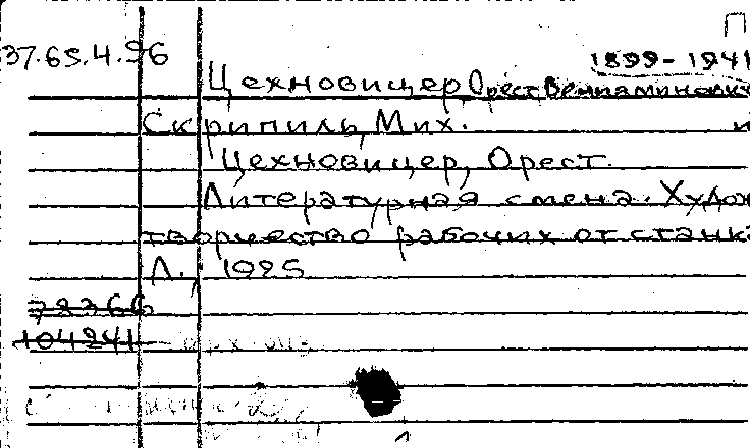 П
37.65.4.96
1899-1941
Цехновицер, Орест Вениаминович
Скрипиль, Мих. и
Цехновицер, Орест.
Литературная смена. Худож
творчество рабочих от станк
Л., 1925
78366
104241